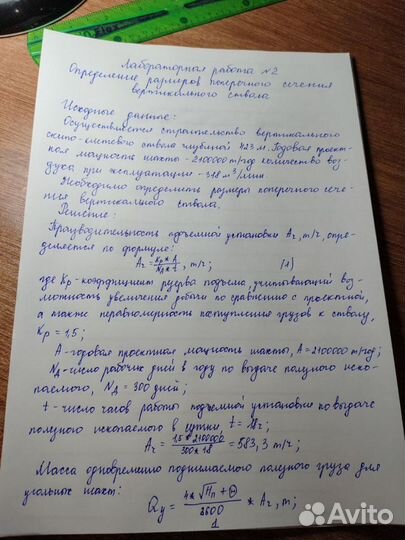 Лабораторная работа №2
Определение размеров поперечного сечения
вертикального ствола
Исходные данные:
Осуществляется строительство вертикального
скипо-клетевого ствола глубиной 423 м. Годовая проект-
ная мощность шахты - 2100000 т/год количество воз-
духа при эксплуатации - 318 м³/мин
Необходимо определить размеры поперечного сече-
ния вертикального ствола.
Решение:
Производительность подъемной установки Aч, т/ч, опре-
деляется по формуле:
Aч = Kр * A / Nд * t, т/ч; (1)
где Kр - коэффициент резерва подъема, учитывающий воз-
можность увеличения добычи по сравнению с проектной,
а также неравномерность поступления грузов к стволу,
Kр = 1,5;
A - годовая проектная мощность шахты, A = 2100000 т/год;
Nд - число рабочих дней в году по выдаче полезного иско-
паемого, Nд = 300 дней;
t - число часов работы подъемной установки по выдаче
полезного ископаемого в сутки, t = 18ч;
Aч = 1,5 * 2100000 / 300 * 18 = 583,3 т/ч;
Масса одновременно поднимаемого полезного груза для
угольных шахт:
Qу = 4 * √Hп + Θ / 3600 * Aч, т;
1
Avito